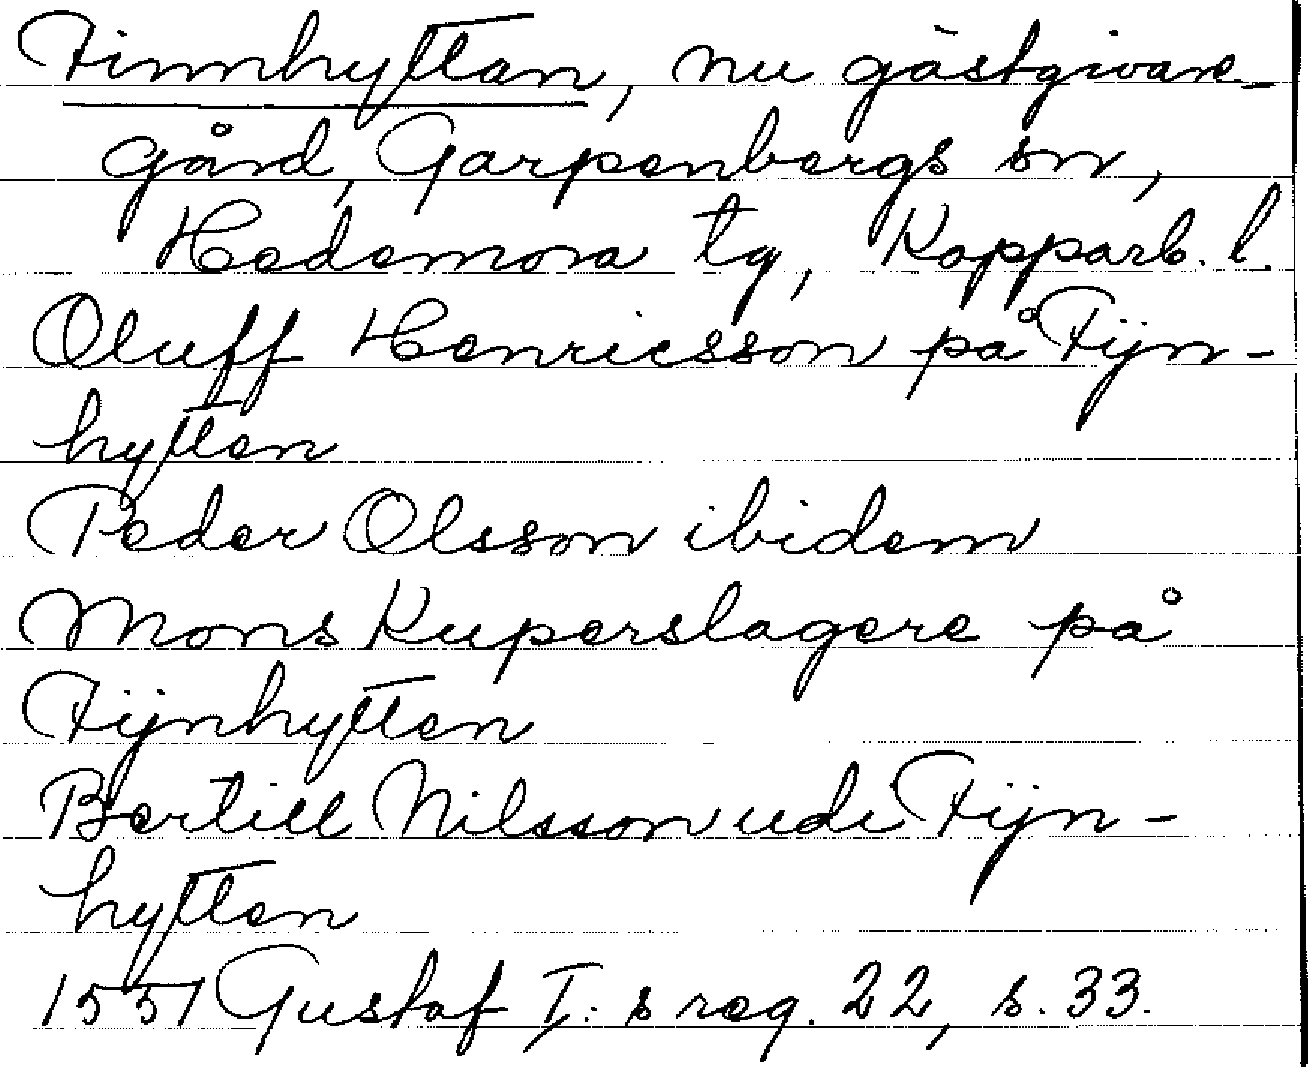 Finnhyttan, nu gästgivare-
gård, Garpenbergs sn,
Hedemora tg, Kopparb. l.
Oluff Henricsson på Fijn-
hytten
Peder Olsson ibidem
Mons Kuperslagere på
Fijnhytten
Bertill Nilsson udi Fijn-
hytten
1551 Gustaf I:s reg. 22, s. 33.